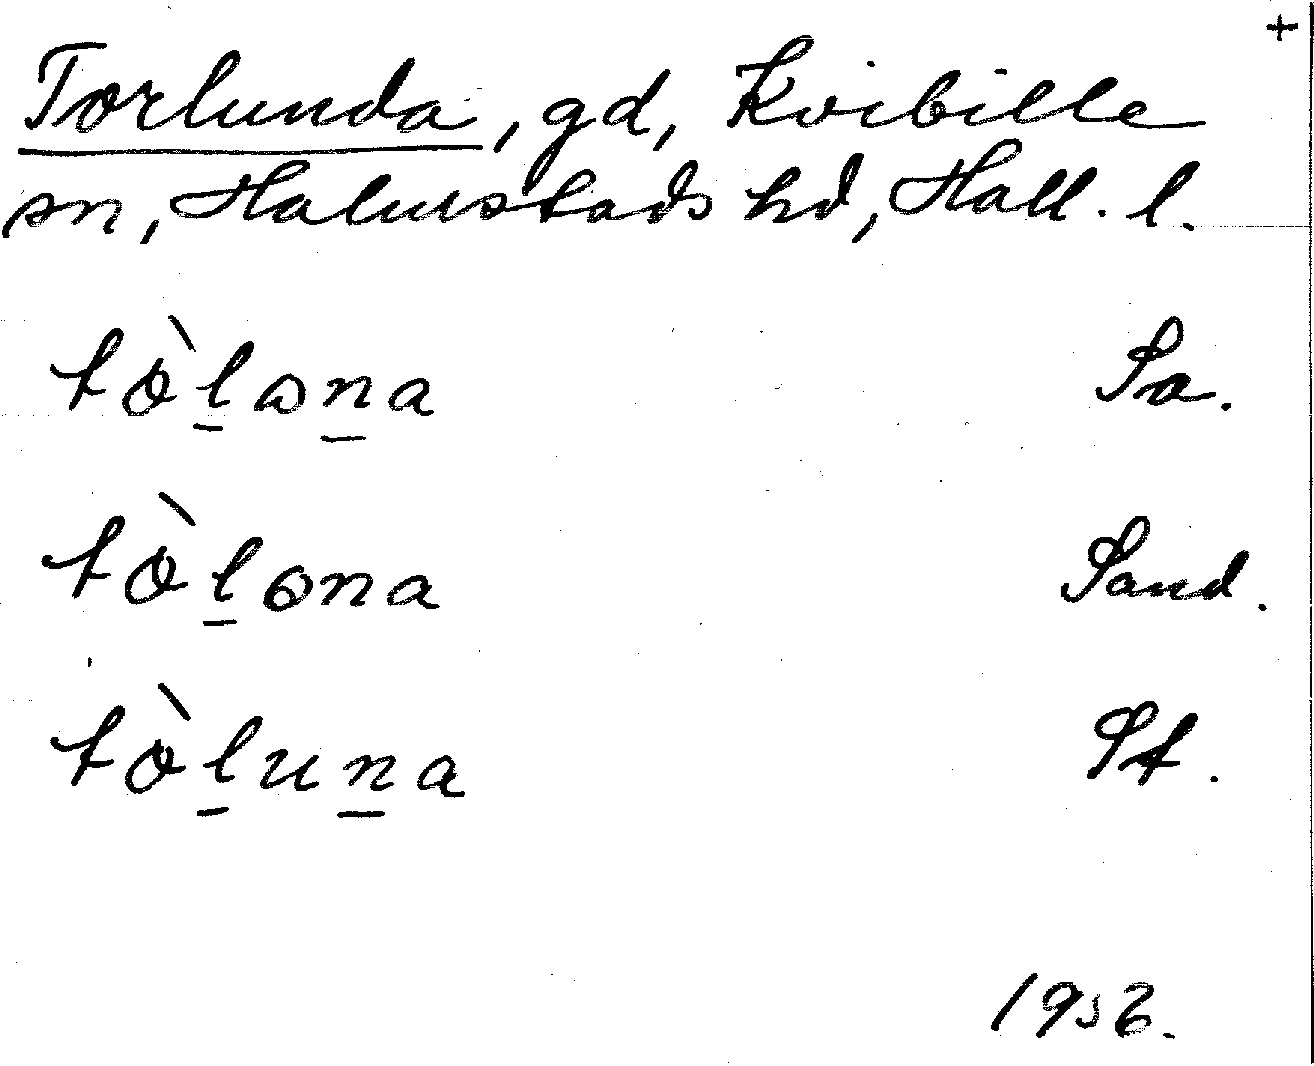 +
Torlunda, gd, Kvibille
sn, Halmstads hd, Hall. l.
tòl̲ɷn̲a Sa.
tòl̲ɷna Sand.
tòl̲un̲a St.